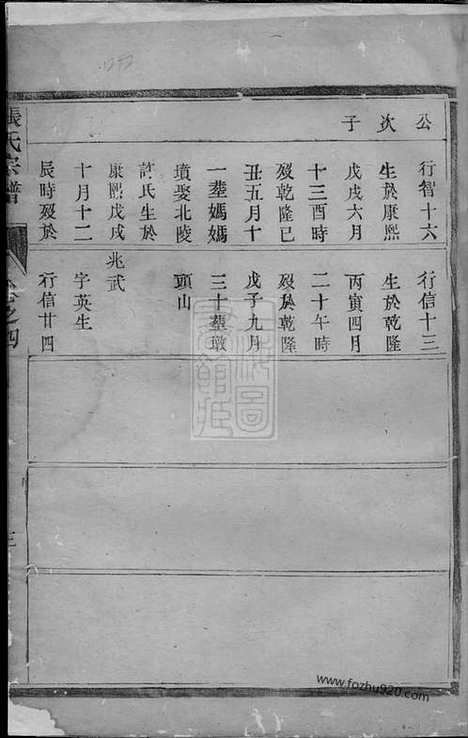 公
次
子
行智十六
生於康熙
戊戌六月
十三酉時
歿乾隆己
丑五月十
一塟媽媽
墳娶北陵
許氏生於
康熙戊戌
十月十二
辰時歿於
行信十三
生於乾隆
丙寅四月
二十午時
歿於乾隆
戊子九月
三十塟墩
頭山
兆武
字英生
行信廿四
張氏宗譜
卷之四
三
www.fozhu920.com